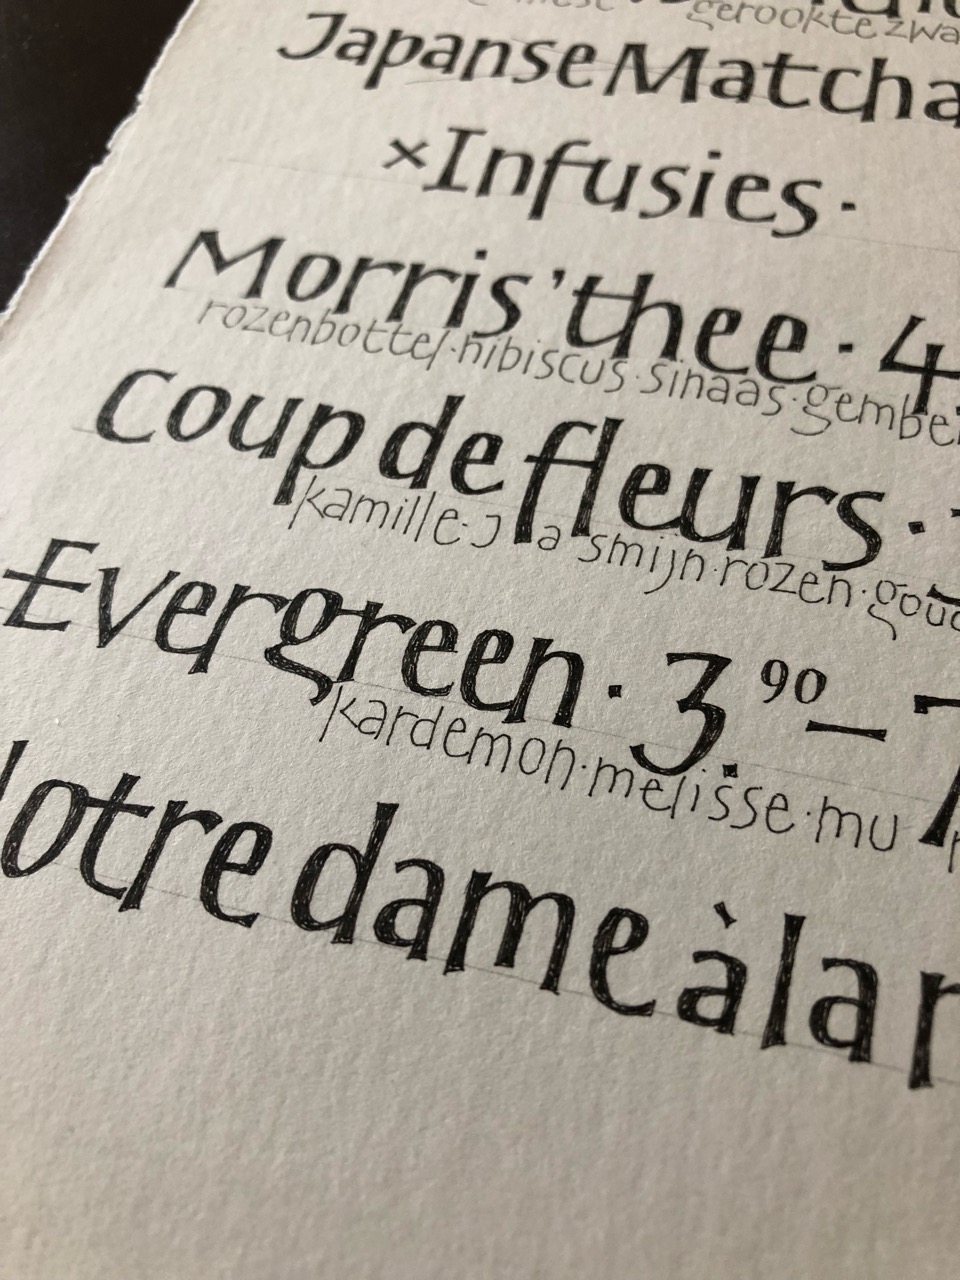 gerookte zwa
Japanse Matcha
×Infusies·
Morris' thee · 4.
rozenbottel·hibiscus·sinaas·gembe
Coup de fleurs ·
kamille·jasmijn·rozen·goud
Evergreen · 3.90–7
kardemon·melisse·mu
otre dame à la r